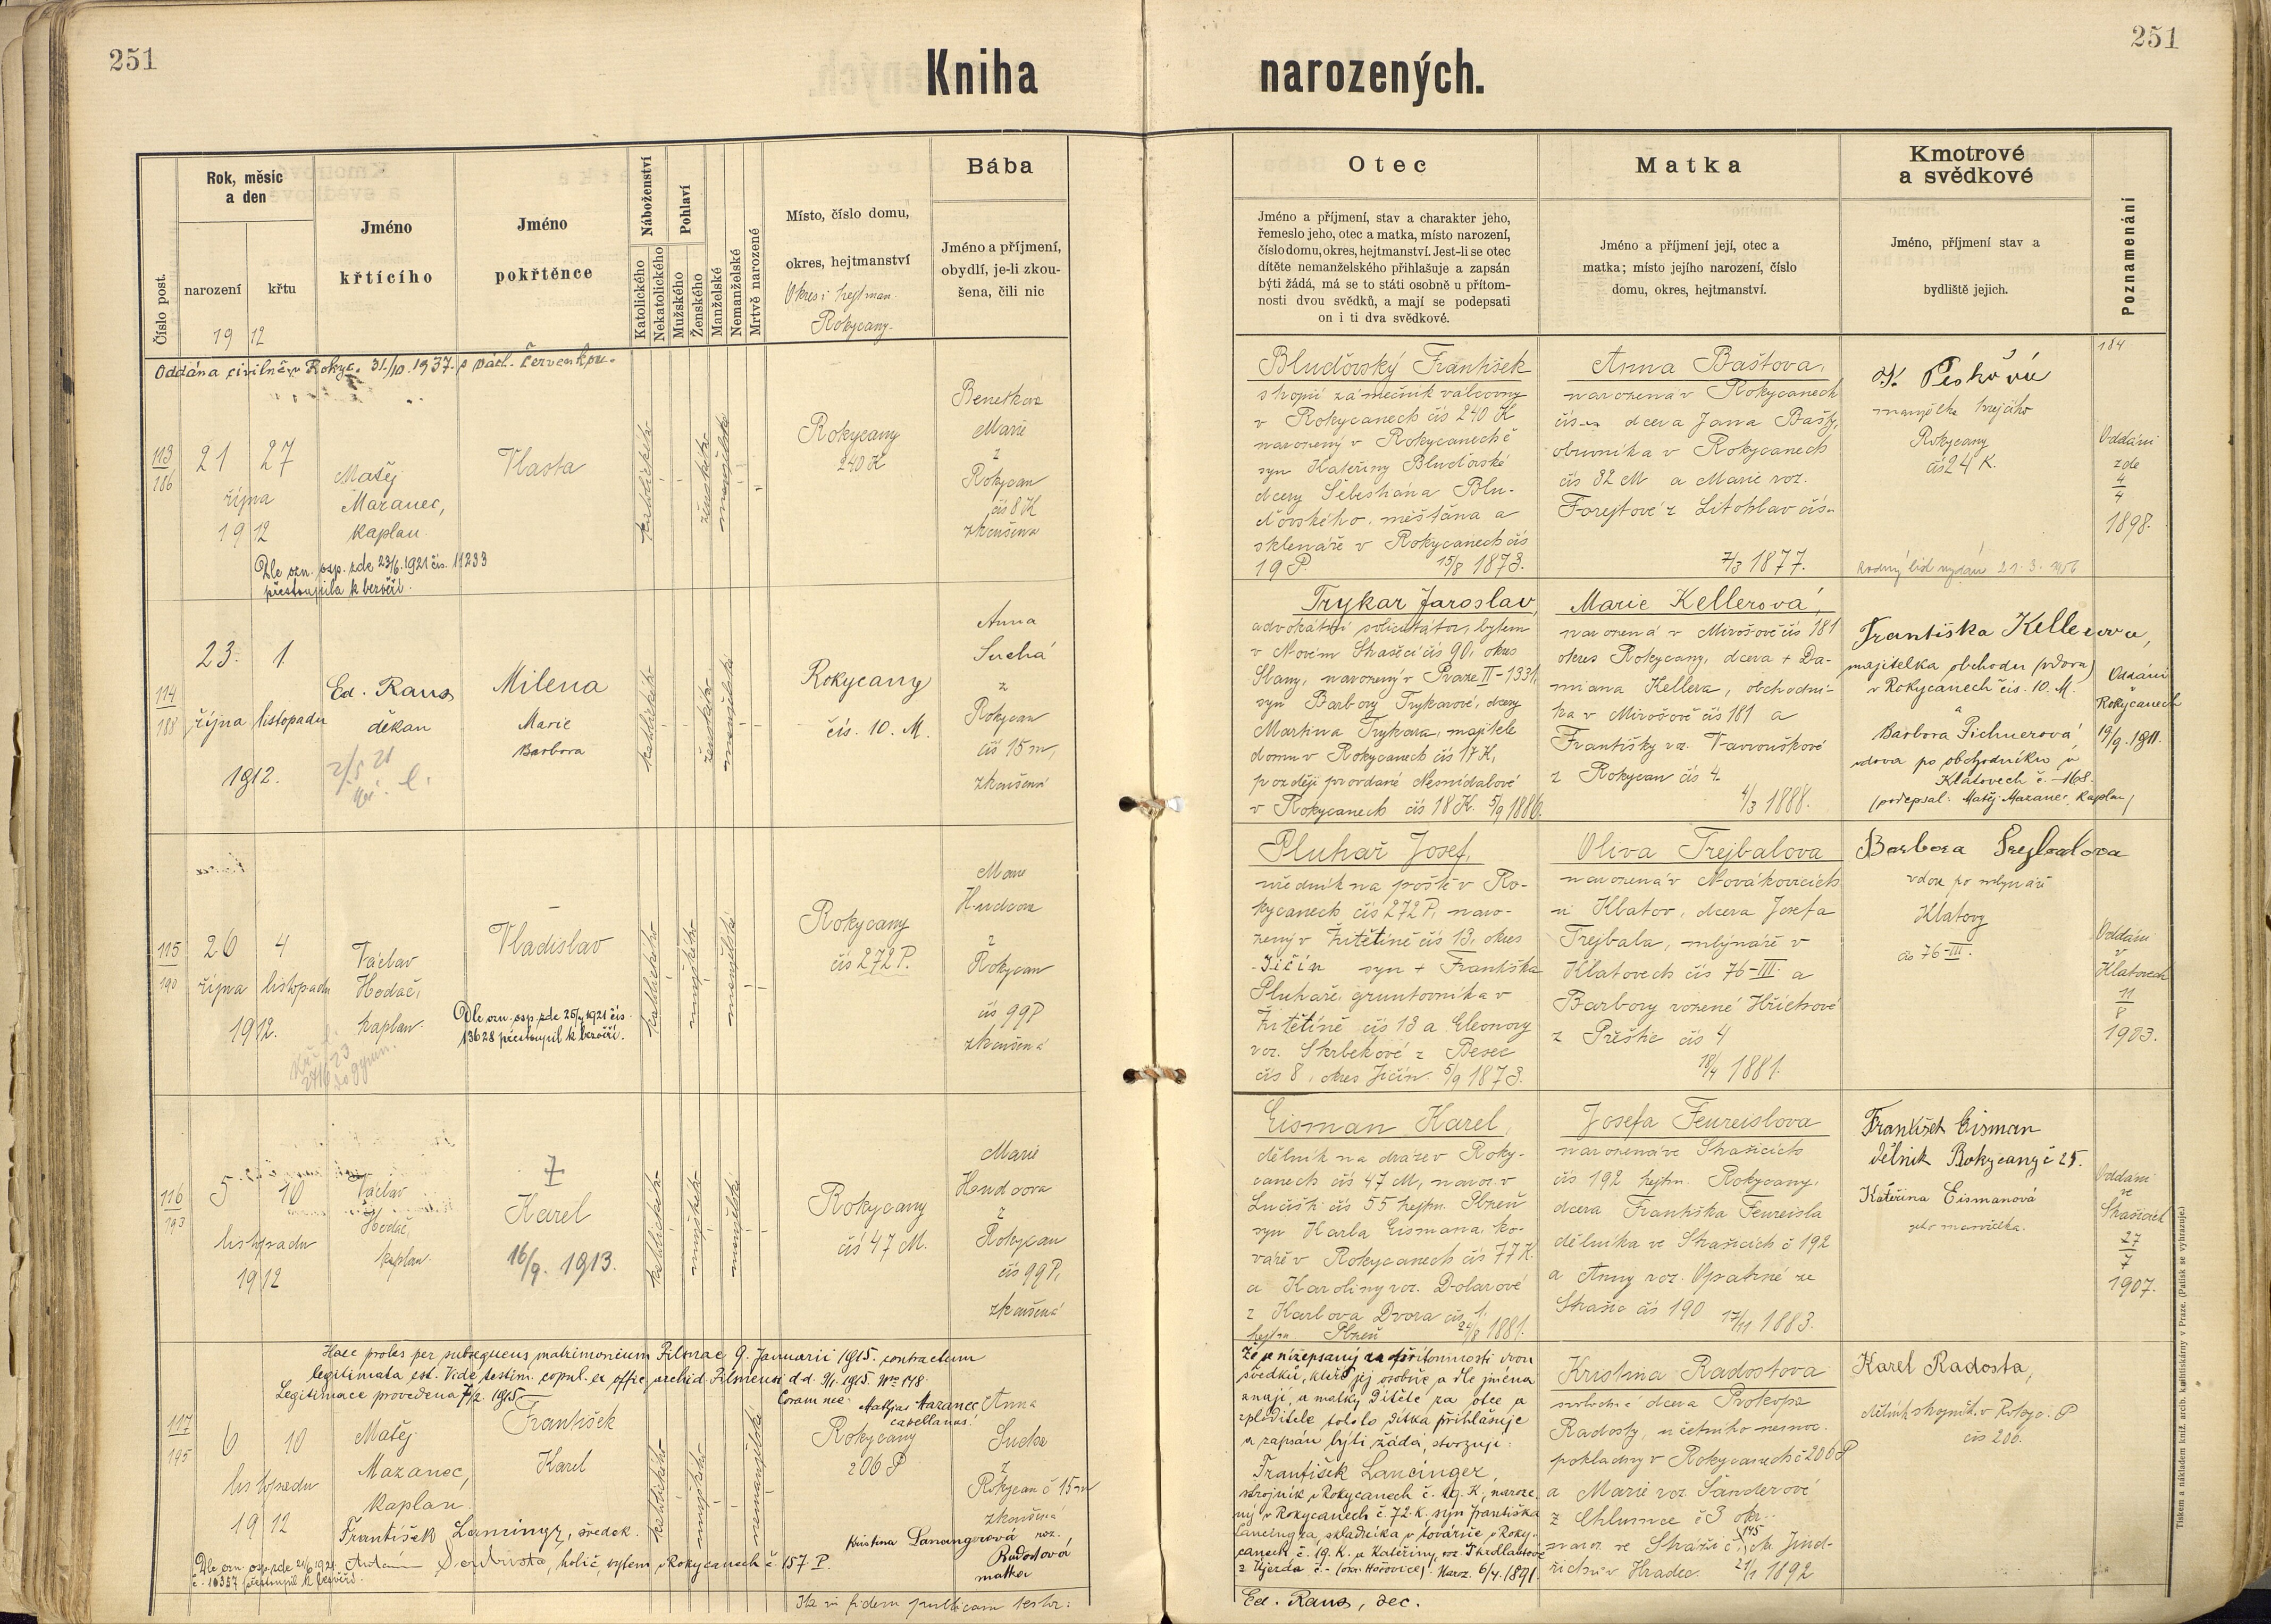 251
Kniha
narozených.
251
Číslo post.
Rok, měsíc
a den
narození
křtu
19 12
Jméno
křtícího
Jméno
pokřtěnce
Náboženství
Katolického
Nekatolického
Pohlaví
Mužského
Ženského
Manželské
Nemanželské
Mrtvě narozené
Místo, číslo domu,
okres, hejtmanství
Okres i hejtman.
Rokycany.
Bába
Jméno a příjmení,
obydlí, je-li zkou-
šena, čili nic
Otec
Jméno a příjmení, stav a charakter jeho,
řemeslo jeho, otec a matka, místo narození,
číslo domu, okres, hejtmanství. Jest-li se otec
dítěte nemanželského přihlašuje a zapsán
býti žádá, má se to státi osobně u přítom-
nosti dvou svědků, a mají se podepsati
on i ti dva svědkové.
Matka
Jméno a příjmení její, otec a
matka; místo jejího narození, číslo
domu, okres, hejtmanství.
Kmotrové
a svědkové
Jméno, příjmení stav a
bydliště jejich.
Poznamenání
Oddána civilně v Rokyc. 31./10. 1937. s Václ. Červenkou.
113
186
21 27
října
1912
Matěj
Mazanec,
kaplan.
Vlasta
katolického
ženského
manželské
Rokycany
240 K
Benešková
Marie
z
Rokycan
čís 8 K
zkoušena
Dle ozn. osp. zde 23/6. 1921 čís. 11233
přestoupila k bezvěří.
Bluďovský František
strojní zámečník válcovny
v Rokycanech čís 240 K
narozený v Rokycanech č
syn Kateřiny Bluďovské
dcery Šebestiána Blu-
ďovského, měšťana a
sklenáře v Rokycanech čís
19 P. 15/8 1873.
Anna Baštova,
narozená v Rokycanech
čís — dcera Jana Bašty,
obuvníka v Rokycanech
čís 82 M a Marie roz.
Forejtové z Litohlav čís —
7/3 1877.
Peškova
manželka krejčího
Rokycany
čís 24 K.
Rodný list vydán 21. 3. 1956
184
Oddáni
zde
4
4
1898.
114
188
23. 1.
října listopadu
1912.
Ed. Raus
děkan
Milena
Marie
Barbora
katolického
ženského
manželské
Rokycany
čís. 10. M.
Anna
Suchá
z
Rokycan
čís 15 m,
zkoušená
Trykar Jaroslav,
advokátní solicitátor, bytem
v Novém Strašecí čís 90, okres
Slany, narozený v Praze II-1331,
syn Barbory Trykarové, dcery
Martina Trykara, majitele
domu v Rokycanech čís 17 K,
později provdané Nesnídalové
v Rokycanech čís 18 K. 5/9 1886.
Marie Kellerová,
narozená v Mirošově čís 181
okres Rokycany, dcera + Da-
miana Kellera, obchodní-
ka v Mirošově čís 181 a
Františky roz. Vavrouškové
z Rokycan čís 4.
4/3 1888.
Františka Kellerova,
majitelka obchodu (vdova)
v Rokycanech čís. 10. M.
a
Barbora Pichnerová
vdova po obchodníku v
Klatovech č. 168.
(podepsal: Matěj Mazanec, kaplan)
Oddáni
v
Rokycanech
19/9. 1911.
115
190
26 4
října listopadu
1912.
Václav
Hodač,
kaplan.
Vladislav
Dle ozn. osp. zde 25/7 1921 čís.
13628 přestoupil k bezvěří.
katolického
mužského
manželské
Rokycany
čís 272 P.
Marie
Hudcova
z
Rokycan
čís 99 P
zkoušená
Pluhař Josef,
úředník na poště v Ro-
kycanech čís 272 P, naro-
zený v Žitětíně čís 13, okres
Jičín syn + Františka
Pluhaře, gruntovníka v
Žitětíně čís 13 a Eleonory
roz. Skrbekové z Besec
čís 8, okres Jičín. 5/9 1873.
Oliva Trejbalova
narozená v Novákovicích
u Klatov, dcera Josefa
Trejbala, mlynáře v
Klatovech čís 76-III. a
Barbory rozené Hříchové
z Přeštic čís 4
18/4 1881.
Barbora Trejbalova
vdova po mlynáři
Klatovy
čís 76-III.
Oddáni
v
Klatovech
11
8
1903.
116
193
5 10
listopadu
1912
Václav
Hodač,
kaplan.
Karel
16/9. 1913.
katolického
mužského
manželské
Rokycany
čís 47 M.
Marie
Hudcova
z
Rokycan
čís 99 P,
zkoušená
Eisman Karel,
dělník na dráze v Roky-
canech čís 47 M, naroz. v
Lučišti čís 55 hejtm. Plzeň
syn Karla Eismana, ko-
váře v Rokycanech čís 77 K.
a Karoliny roz. Dolarové
z Karlova Dvora čís 1.
hejtm Plzeň 24/8 1881.
Josefa Feureislova
narozená ve Strašicích
čís 192 hejtm. Rokycany,
dcera Františka Feureisla
dělníka ve Strašicích č 192
a Anny roz. Opatrné ze
Strašic čís 190 17/11 1883.
František Eisman
dělník Rokycany č 25.
Kateřina Eismanová
jeho manželka.
Oddáni
ve
Strašicích
27
7
1907.
Haec proles per subsequens matrimonium Pilsnae 9. Januarii 1915. contractum
legitimata est. Vide testim. copul. ex offic. archid. Pilsnensi d.d. 9/1. 1915. Nro 148.
Legitimace provedena 7/2. 1915.
Coram me: Mathias Mazanec
capellanus.
117
195
6 10
listopadu
1912
Matěj
Mazanec,
kaplan.
František
Karel
katolického
mužského
nemanželské
Rokycany
206 P
Anna
Suchá
z
Rokycan č 15 m
zkoušená
František Lancinger, svědek.
Kristina Lancingerová roz.
Radostová
matka
holič, bytem v Rokycanech č. 157 P.
Dle ozn. osp. zde 24/6 1921
č. 10357 přestoupil k bezvěří.
Ita in fidem publicam testor:
Že je nížepsaný za přítomnosti dvou
svědků, kteří jej osobně a dle jména
znají, a matky dítěte za otce a
zploditele tohoto dítka přihlašuje
a zapsán býti žádá, stvrzuje:
František Lancinger,
strojník v Rokycanech č. 19. K, naroze-
ný v Rokycanech č. 72. K. syn Františka
Lancingra, skladníka v továrně v Roky-
canech č. 19. K. a Kateřiny, roz. Škadlantové
z Újezda č. - (okr. Hořovice). Naroz. 6/4. 1891.
Ed. Raus, dec.
Kristina Radostova
svobodná dcera Prokopa
Radosty, účetního nemoc.
pokladny v Rokycanech č 206 P
a Marie roz. Šanderové
z Chlumce č 3 okr.
naroz. ve Stráži č. 145, ok. Jind-
řichův Hradec. 21/1 1892
Karel Radosta,
dělník v Rokyc. P
čís 206.
Tiskem a nákladem kníž. arcib. knihtiskárny v Praze. (Patisk se vyhrazuje.)